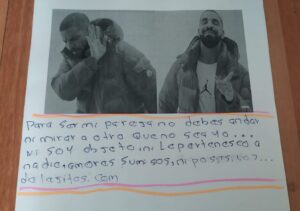 Para ser mi pareja no debes andar
ni mirar a otro que no sea yo...
ni soy objeto, ni le pertenesco a
nadie, amores sumisos, ni posesivos...
dalasitos.com